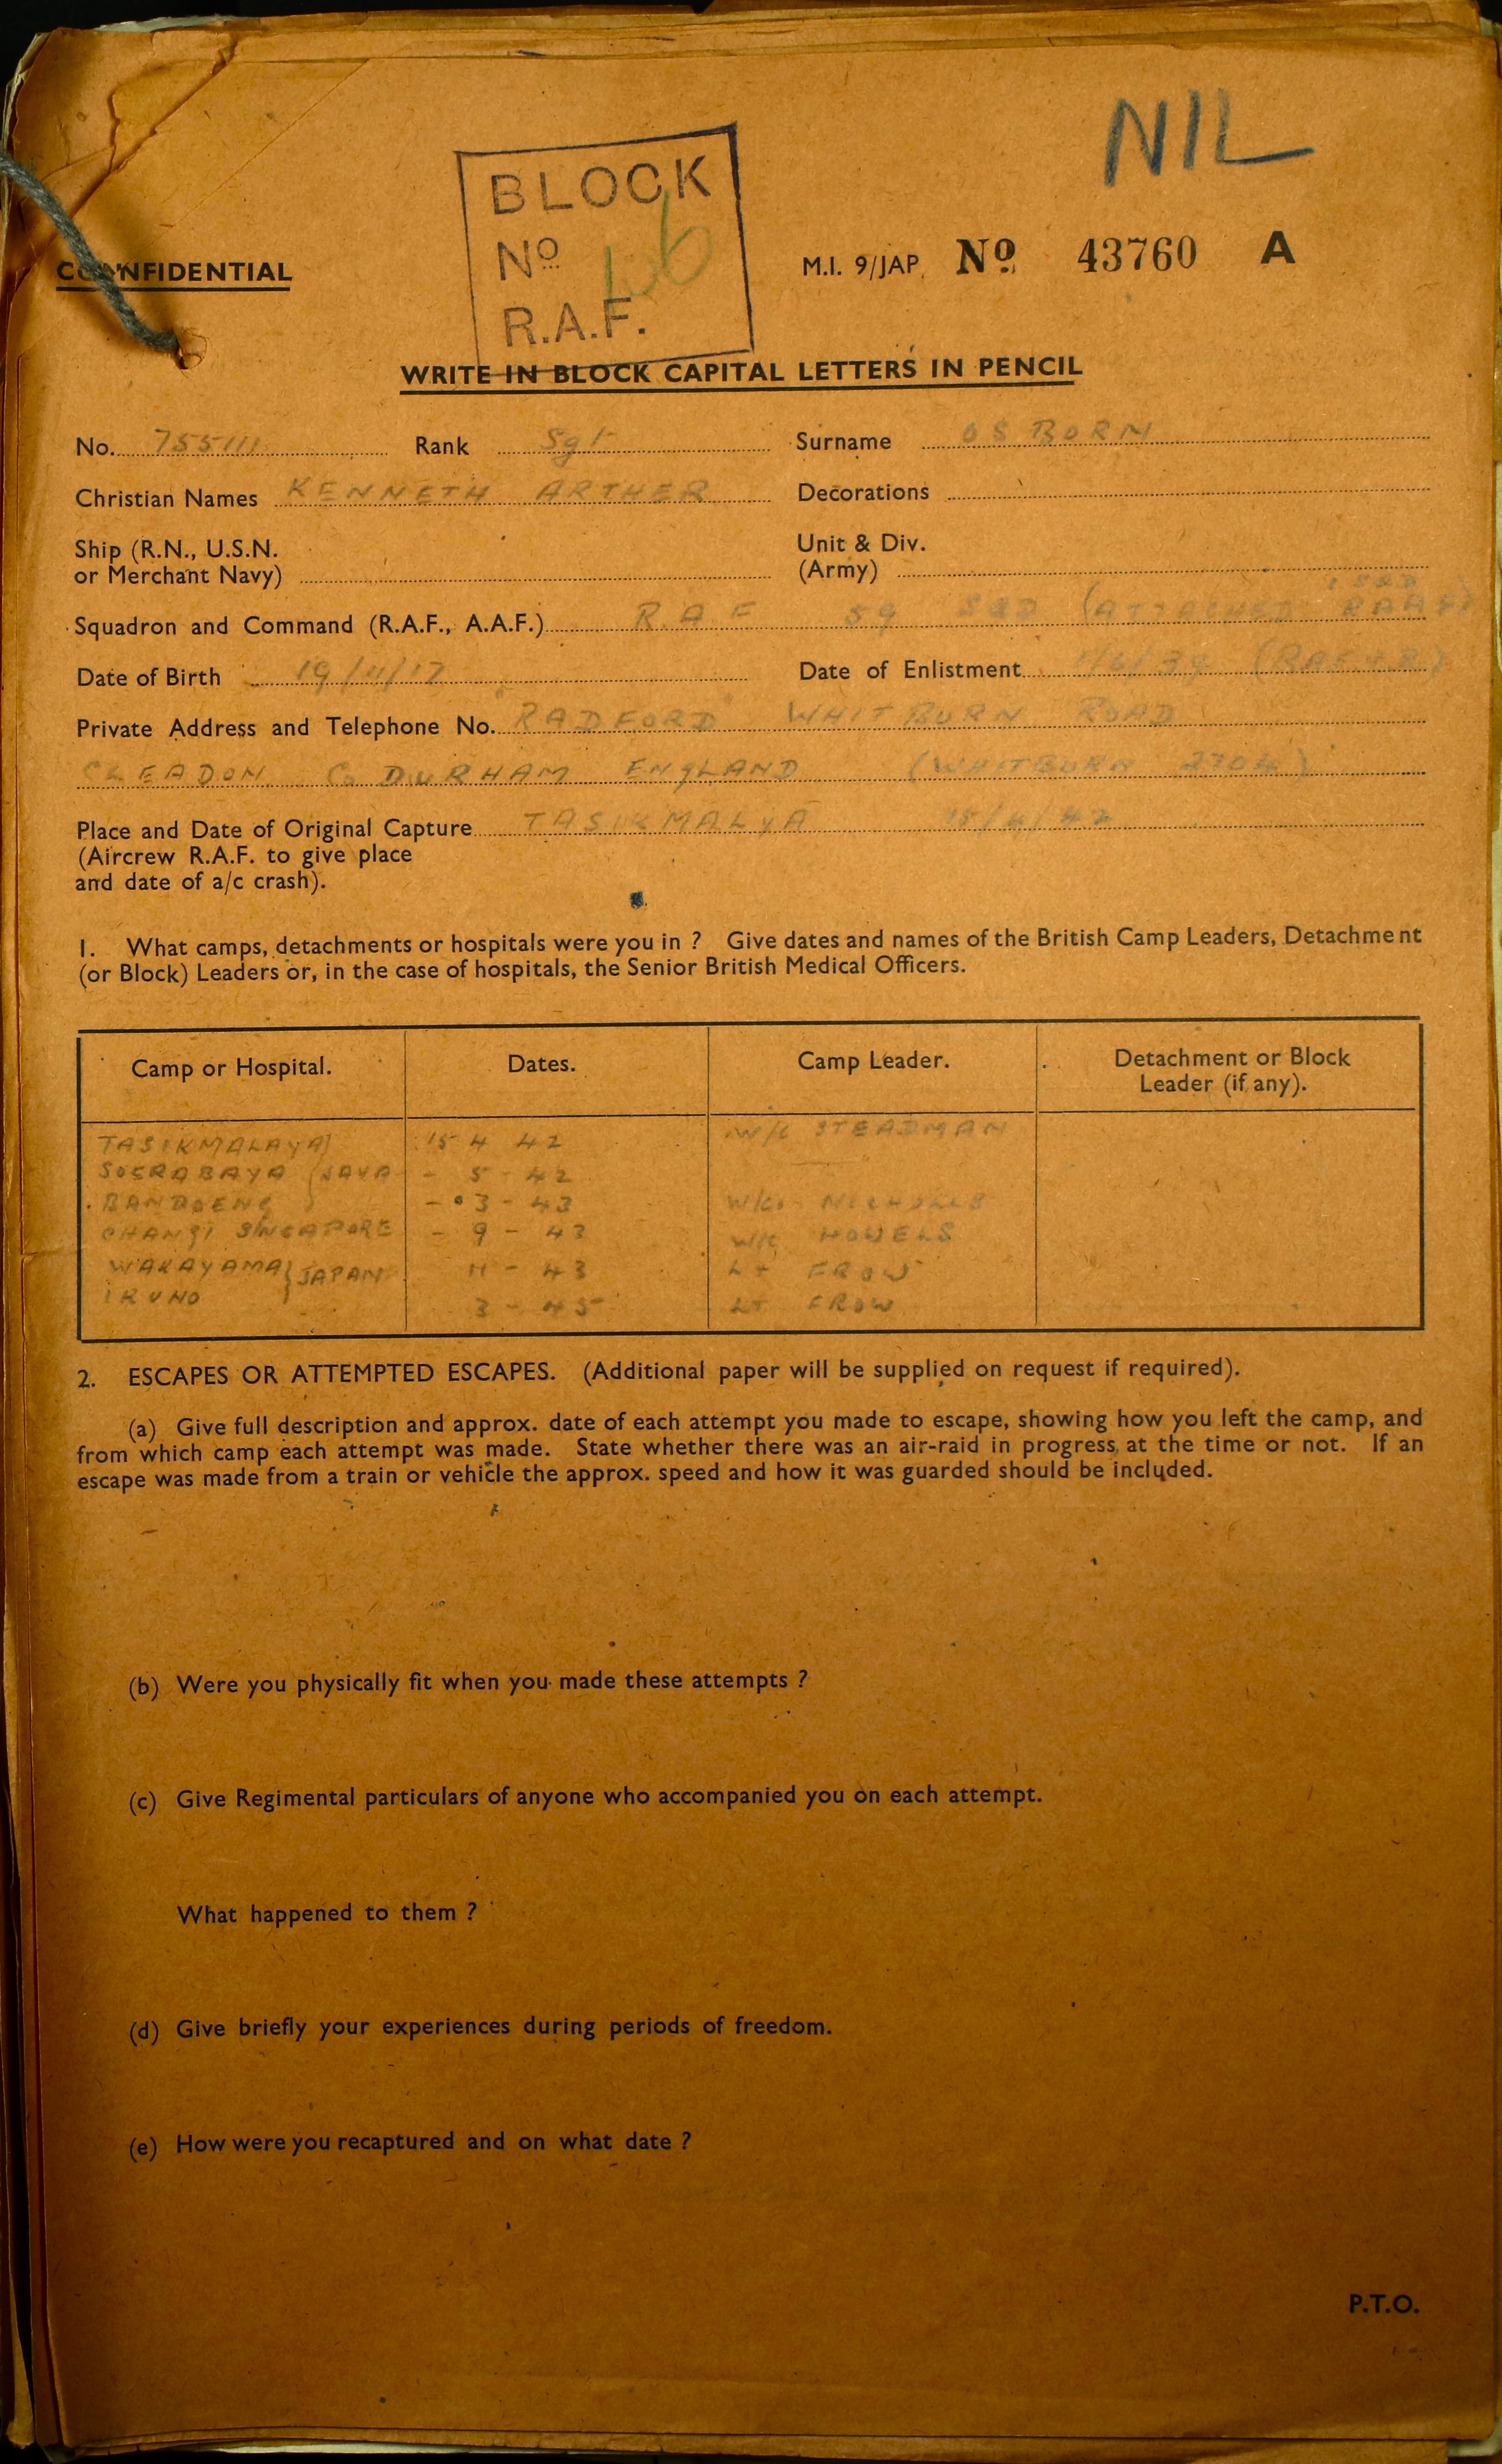 NIL
BLOCK
No 46
R.A.F.
CONFIDENTIAL
M.I. 9/JAP. No 43760 A
WRITE IN BLOCK CAPITAL LETTERS IN PENCIL
No. 755111 Rank Sgt Surname OSBORN
Christian Names KENNETH ARTHER Decorations
Ship (R.N., U.S.N. or Merchant Navy) Unit & Div. (Army)
Squadron and Command (R.A.F., A.A.F.) R.A.F 59 SQD (ATTACHED 1 SQD RAAF)
Date of Birth 19/11/17 Date of Enlistment 1/6/39 (RAFVR)
Private Address and Telephone No. "RADFORD" WHITBURN ROAD
CLEADON Co DURHAM ENGLAND (WHITBURN 2704)
Place and Date of Original Capture TASIKMALYA 15/4/42
(Aircrew R.A.F. to give place
and date of a/c crash).
1. What camps, detachments or hospitals were you in ? Give dates and names of the British Camp Leaders, Detachment
(or Block) Leaders or, in the case of hospitals, the Senior British Medical Officers.
Camp or Hospital. Dates. Camp Leader. Detachment or Block Leader (if any).
TASIKMALAYA 15 4 42 W/C STEADMAN
SOERABAYA JAVA - 5 - 42
BANDOENG - 3 - 43 W/Co NICHOLLS
CHANGI SINGAPORE - 9 - 43 W/C HOWELS
WAKAYAMA JAPAN 11 - 43 LT FROW
IKUNO 3 - 45 LT FROW
2. ESCAPES OR ATTEMPTED ESCAPES. (Additional paper will be supplied on request if required).
(a) Give full description and approx. date of each attempt you made to escape, showing how you left the camp, and
from which camp each attempt was made. State whether there was an air-raid in progress at the time or not. If an
escape was made from a train or vehicle the approx. speed and how it was guarded should be included.
(b) Were you physically fit when you made these attempts ?
(c) Give Regimental particulars of anyone who accompanied you on each attempt.
What happened to them ?
(d) Give briefly your experiences during periods of freedom.
(e) How were you recaptured and on what date ?
P.T.O.